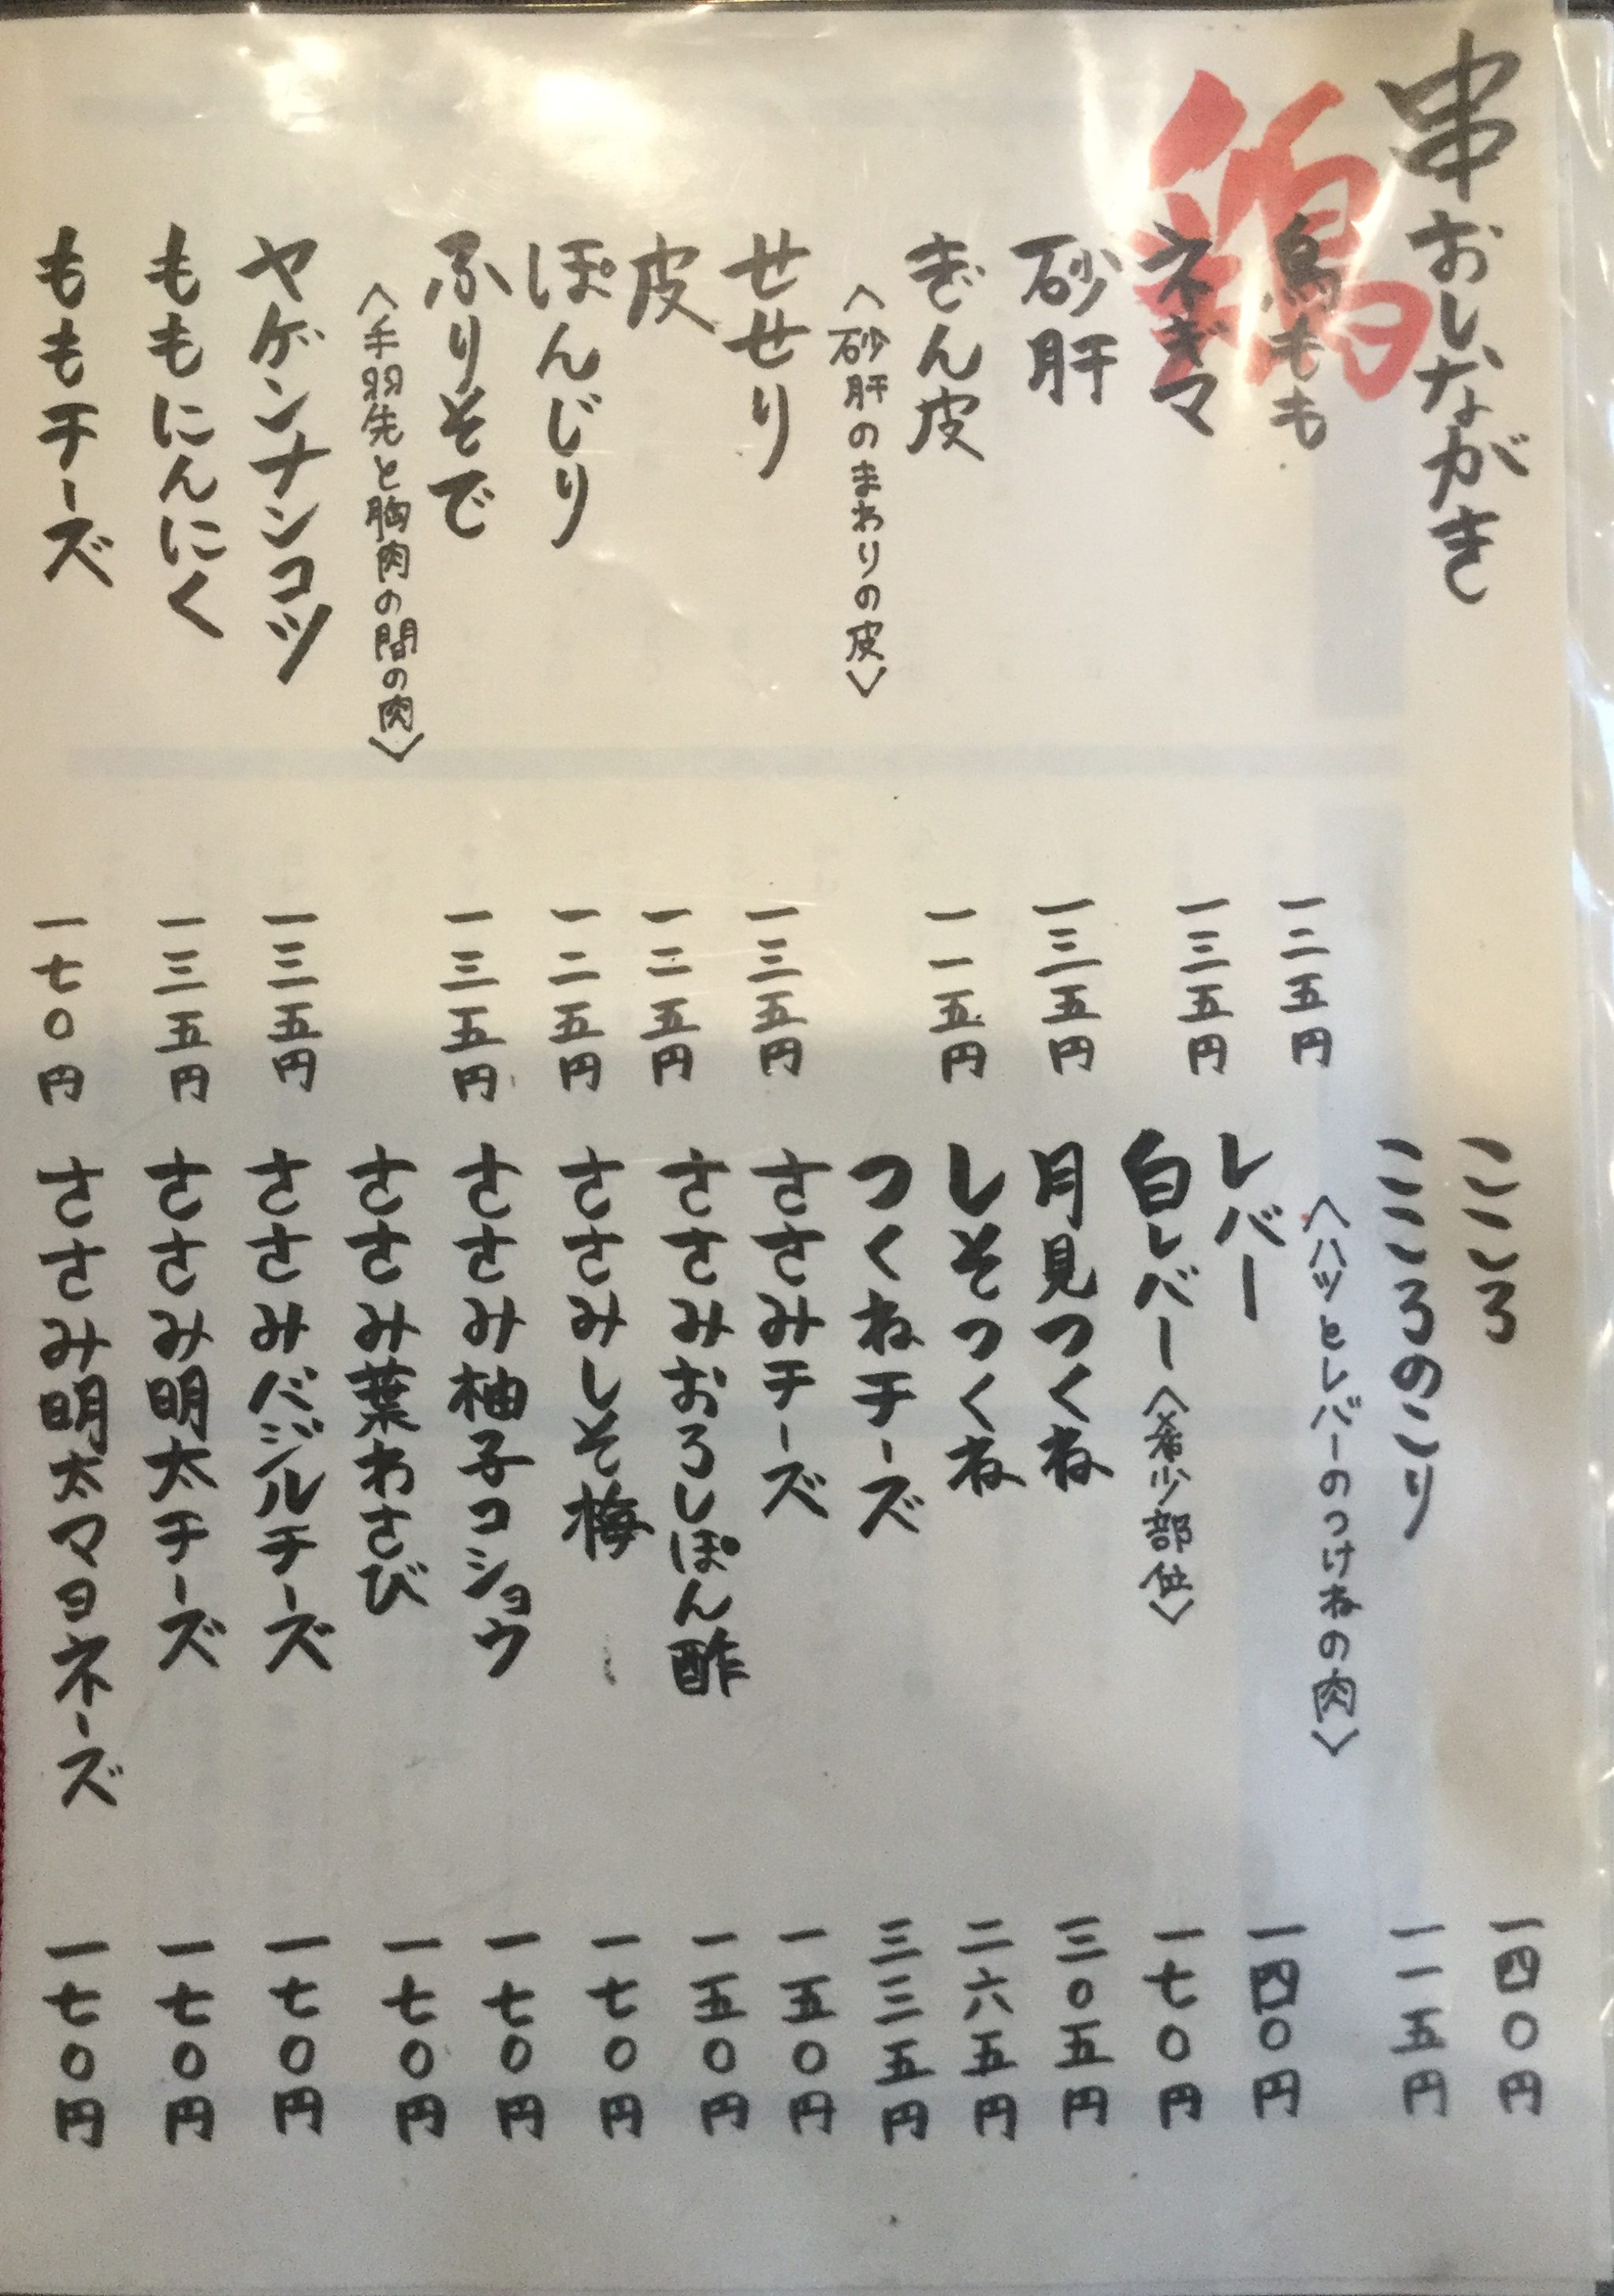 串おしながき
鶏
鳥もも 一二五円
ネギマ 一三五円
砂肝 一三五円
ぎん皮 一一五円
〈砂肝のまわりの皮〉
せせり 一三五円
皮 一二五円
ぽんじり 一二五円
ふりそで 一三五円
〈手羽先と胸肉の間の肉〉
ヤゲンナンコツ 一三五円
ももにんにく 一三五円
ももチーズ 一七〇円
こころ 一四〇円
こころのこり 一一五円
〈ハツとレバーのつけねの肉〉
レバー 一四〇円
白レバー〈希少部位〉 一七〇円
月見つくね 三〇五円
しそつくね 二六五円
つくねチーズ 三三五円
ささみチーズ 一五〇円
ささみおろしぽん酢 一五〇円
ささみしそ梅 一七〇円
ささみ柚子コショウ 一七〇円
ささみ葉わさび 一七〇円
ささみバジルチーズ 一七〇円
ささみ明太チーズ 一七〇円
ささみ明太マヨネーズ 一七〇円